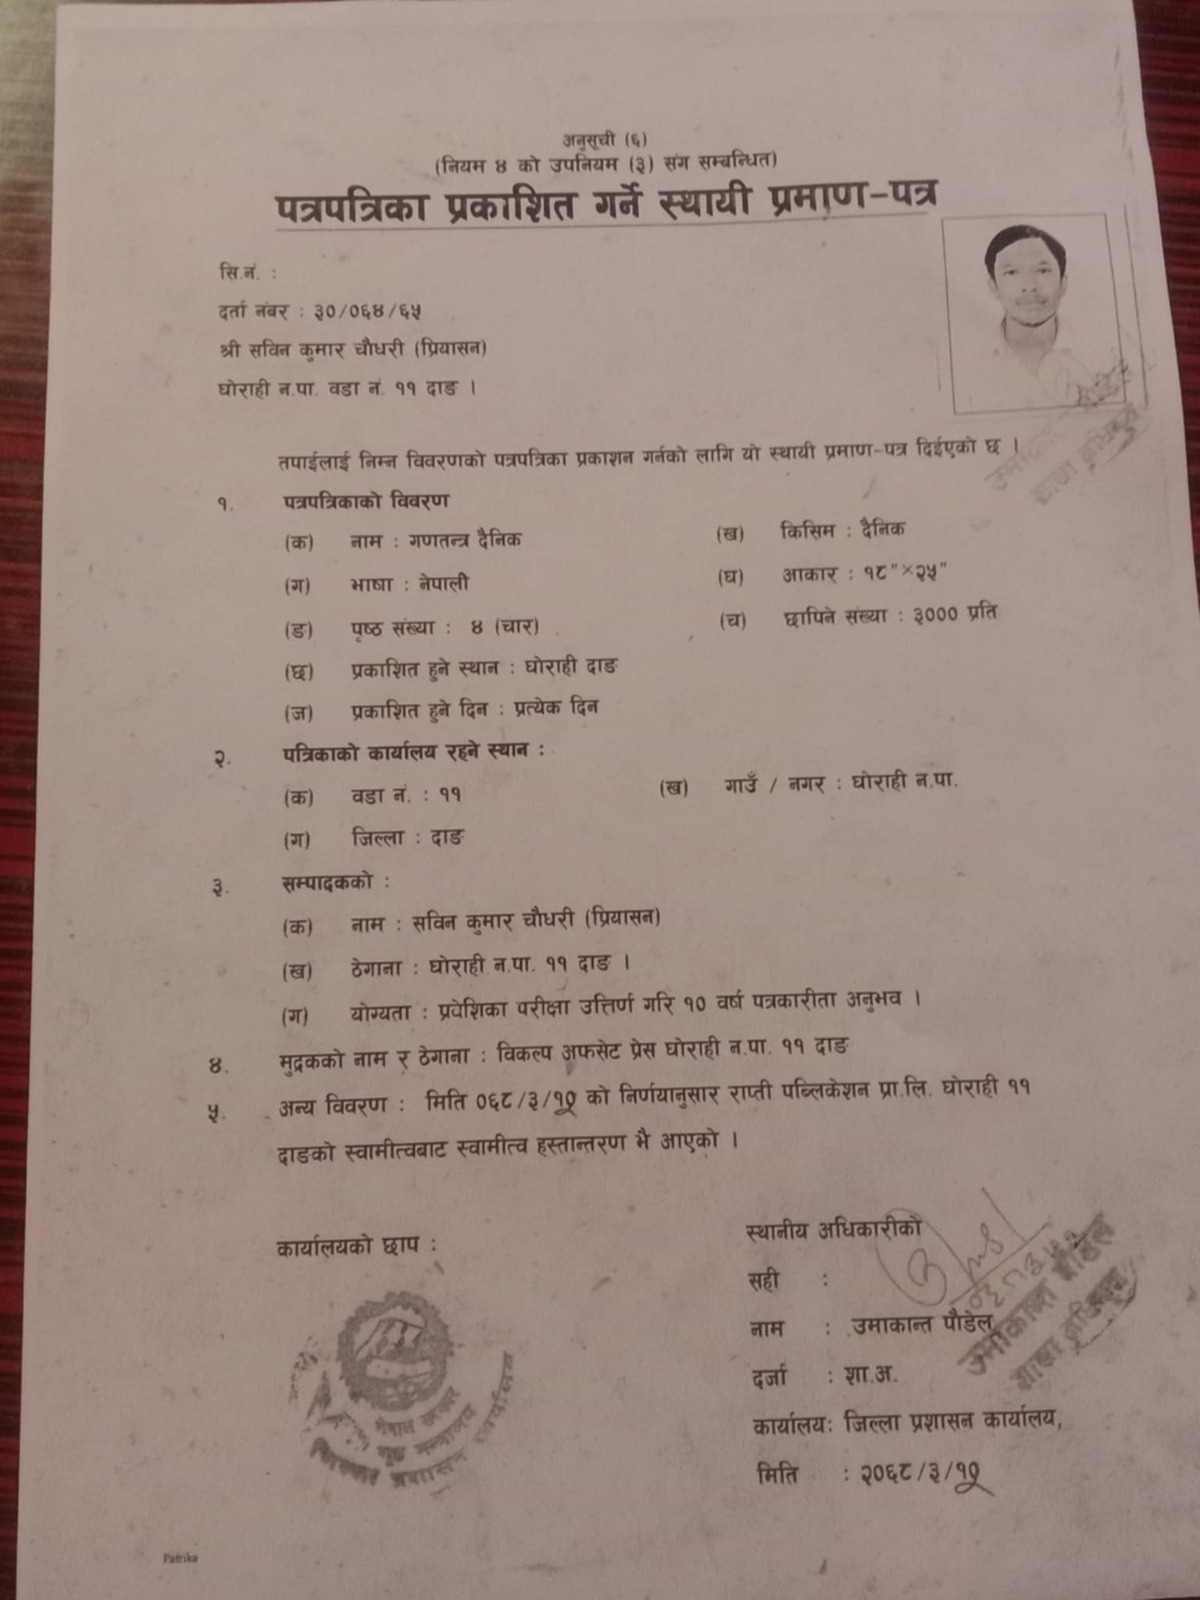 अनुसूची (६)
(नियम ४ को उपनियम (३) संग सम्बन्धित)
पत्रपत्रिका प्रकाशित गर्ने स्थायी प्रमाण-पत्र
सि.नं. :
दर्ता नंबर : ३०/०६४/६५
श्री सविन कुमार चौधरी (प्रियासन)
घोराही न.पा. वडा नं. ११ दाङ ।
तपाईलाई निम्न विवरणको पत्रपत्रिका प्रकाशन गर्नको लागि यो स्थायी प्रमाण-पत्र दिईएको छ ।
उमाकान्त पौडेल
शाखा अधिकृत
१. पत्रपत्रिकाको विवरण
(क) नाम : गणतन्त्र दैनिक (ख) किसिम : दैनिक
(ग) भाषा : नेपाली (घ) आकार : १८"×२५"
(ङ) पृष्ठ संख्या : ४ (चार) (च) छापिने संख्या : ३००० प्रति
(छ) प्रकाशित हुने स्थान : घोराही दाङ
(ज) प्रकाशित हुने दिन : प्रत्येक दिन
२. पत्रिकाको कार्यालय रहने स्थान :
(क) वडा नं. : ११ (ख) गाउँ / नगर : घोराही न.पा.
(ग) जिल्ला : दाङ
३. सम्पादकको :
(क) नाम : सविन कुमार चौधरी (प्रियासन)
(ख) ठेगाना : घोराही न.पा. ११ दाङ ।
(ग) योग्यता : प्रवेशिका परीक्षा उत्तिर्ण गरि १० वर्ष पत्रकारीता अनुभव ।
४. मुद्रकको नाम र ठेगाना : विकल्प अफसेट प्रेस घोराही न.पा. ११ दाङ
५. अन्य विवरण : मिति ०६८/३/१० को निर्णयानुसार राप्ती पब्लिकेशन प्रा.लि. घोराही ११
दाङको स्वामीत्वबाट स्वामीत्व हस्तान्तरण भै आएको ।
कार्यालयको छाप :
नेपाल सरकार
गृह मन्त्रालय
जिल्ला प्रशासन कार्यालय
स्थानीय अधिकारीको
सही :
नाम : उमाकान्त पौडेल
दर्जा : शा.अ.
कार्यालय: जिल्ला प्रशासन कार्यालय,
मिति : २०६८/३/१०
उमाकान्त पौडेल
शाखा अधिकृत
Patrika